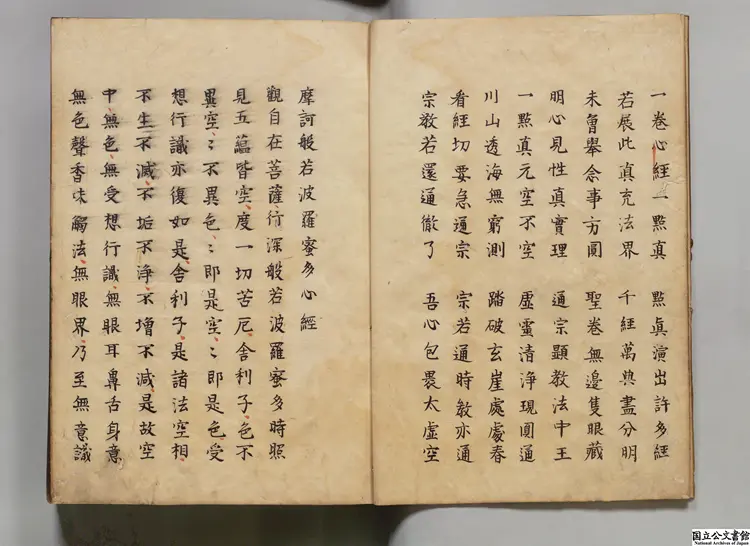 一卷心經一點真 點真演出許多經
若展此真充法界 千經萬典盡分明
未曾舉念事方圓 聖卷無邊隻眼藏
明心見性真實理 通宗顯教法中王
一點真元空不空 虛靈清淨現圓通
川山透海無窮測 踏破玄崖處處春
看經切要急通宗 宗若通時教亦通
宗教若還通徹了 吾心包畏太虛空
摩訶般若波羅蜜多心經
觀自在菩薩行深般若波羅蜜多時照
見五蘊皆空度一切苦厄舍利子色不
異空〻不異色〻即是空〻即是色受
想行識亦復如是舍利子是諸法空相
不生不滅不垢不淨不增不減是故空
中無色無受想行識無眼耳鼻舌身意
無色聲香味觸法無眼界乃至無意識
国立公文書館
National Archives of Japan